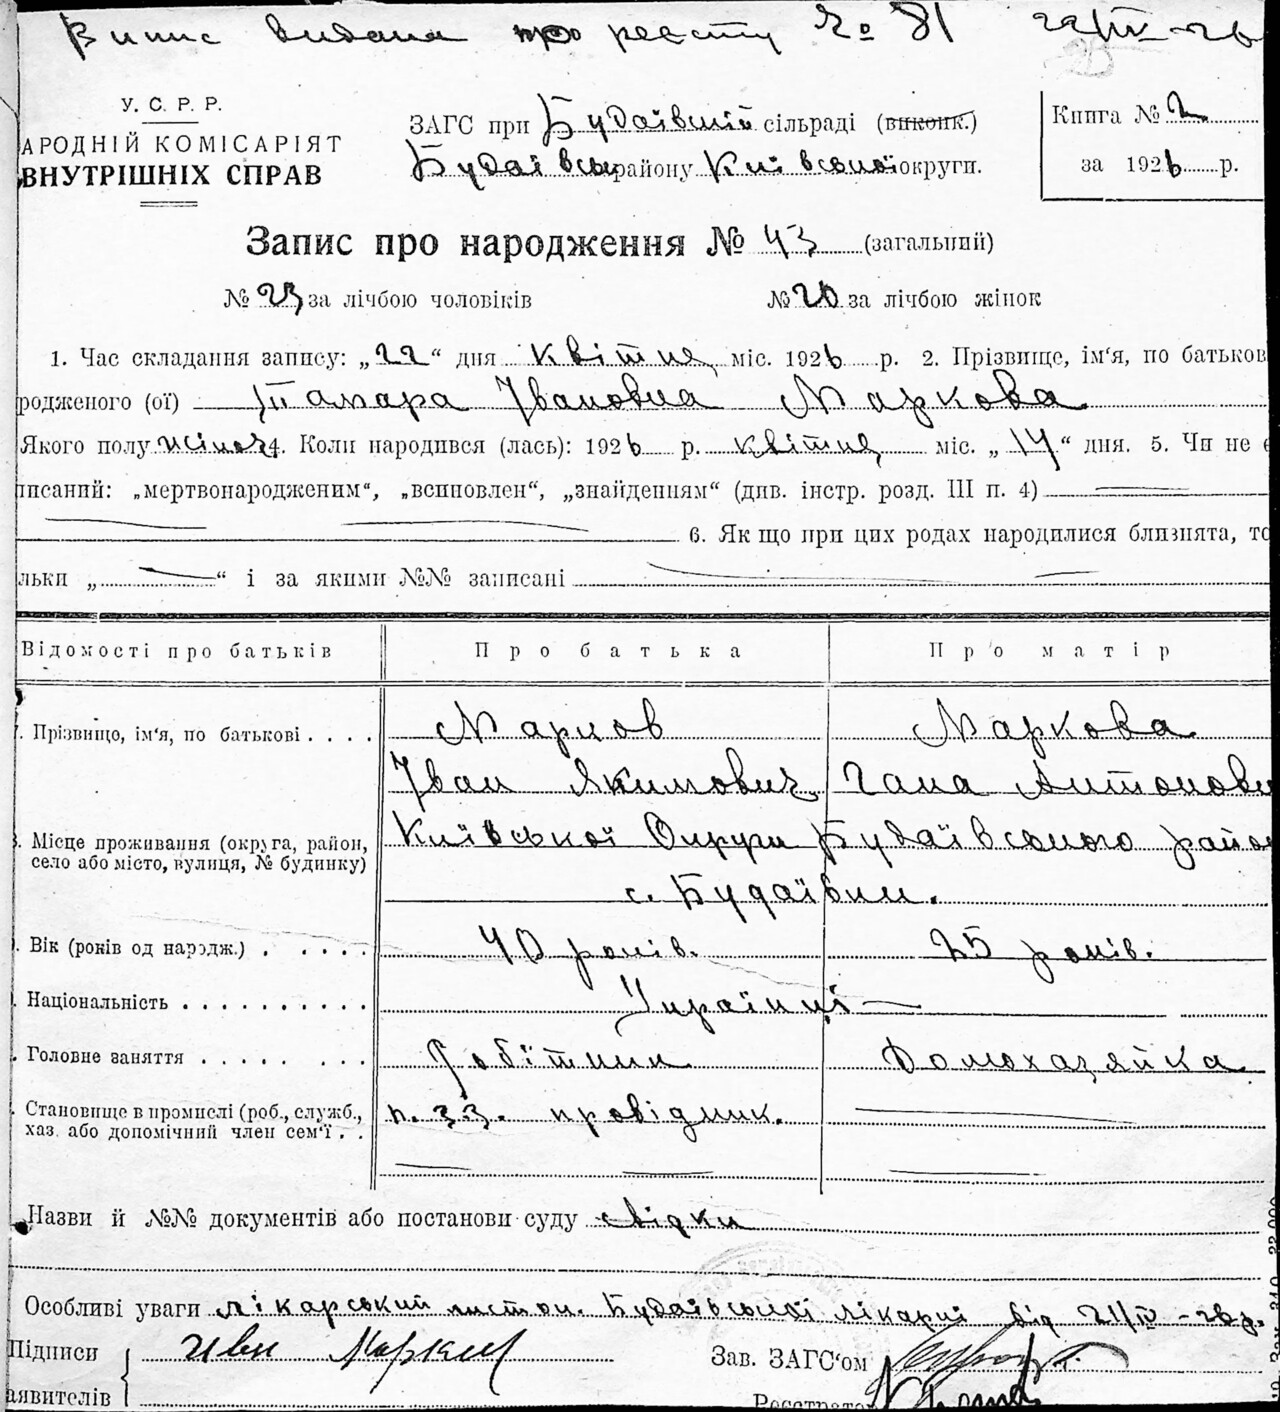 Випис видана про реєстру № 81 22/IV-26
У. С. Р. Р.
АРОДНІЙ КОМІСАРІЯТ
ВНУТРІШНІХ СПРАВ
ЗАГС при Будаївській сільраді (виконк.)
Будаївськ району Київської округи.
Книга № 2
за 1926 р.
Запис про народження № 43 (загальний)
№ 23 за лічбою чоловіків № 20 за лічбою жінок
1. Час складання запису: „22“ дня квітня міс. 1926 р. 2. Прізвище, ім'я, по батьков
родженого (ої) Тамара Івановна Маркова
Якого полу жіноч 4. Коли народився (лась): 1926 р. квітня міс. „14“ дня. 5. Чи не є
писаний: „мертвонародженим“, „всиновлен“, „знайденням“ (див. інстр. розд. III п. 4)
6. Як що при цих родах народилися близнята, то
льки „ “ і за якими №№ записані
Відомості про батьків Про батька Про матір
Прізвищо, ім'я, по батькові . . . . Марков Маркова
Іван Якимович Гана Антонови
Місце проживання (округа, район, село або місто, вулиця, № будинку) Київської Округи Будаївського район
с. Будаївки.
Вік (років од народж.) . . . . . 40 років. 25 років.
Національність . . . . . . . . . . Українці
Головне заняття . . . . . . . . Робітник Домохазяйка
Становище в промислі (роб., служб., хаз. або допомічний член сем'ї . . п. з.з. провідник.
Назви й №№ документів або постанови суду свідки
Особливі уваги лікарський листок Будаївської лікарні від 21/IV-26р.
Підписи Иван Маркин Зав. ЗАГС'ом
аявителів Реєстрато